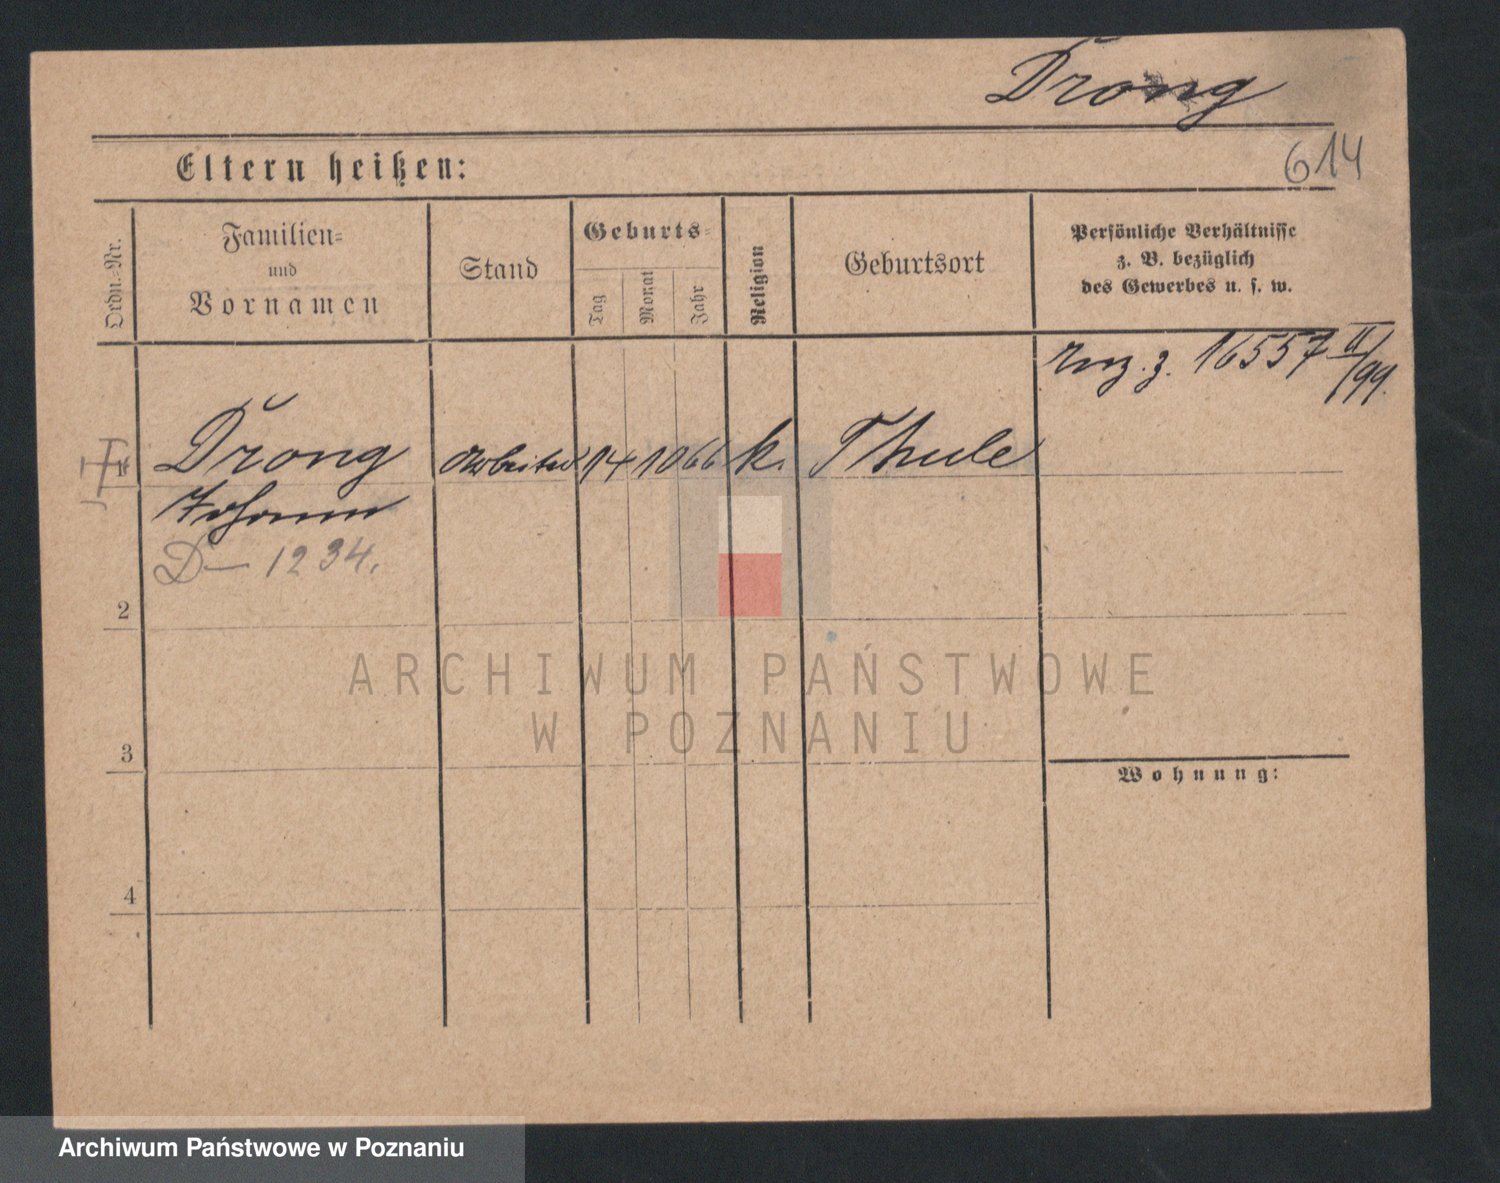 Drong
614
Eltern heißen:
Ordn.-Nr.
Familien-
und
Vornamen
Stand
Geburts-
Tag
Monat
Jahr
Religion
Geburtsort
Persönliche Verhältnisse
z. B. bezüglich
des Gewerbes u. s. w.
z. 16557 II/99.
1
Drong Arbeiter 14 10 66 k. Thule
Johann
D—1234.
2
ARCHIWUM PAŃSTWOWE
W POZNANIU
3
Wohnung:
4
Archiwum Państwowe w Poznaniu